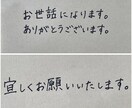 お世話になります。
ありがとうございます。
宜しくお願いいたします。